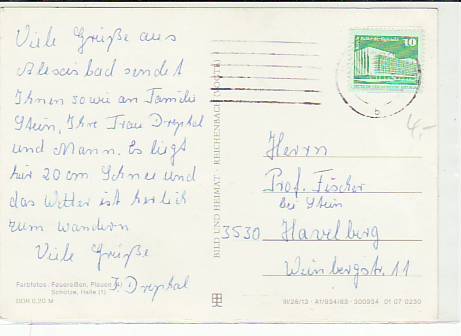 Viele Grüße aus
Alexisbad sendet
Ihnen sowie an Familie
Stein, Ihre Frau Drephal
und Mann. Es liegt
hier 20 cm Schnee und
das Wetter ist herlich
zum wandern
Viele Grüße
I. Drephal
Farbfotos: Feuereißen, Plauen
Schütze, Halle (1)
DDR 0,20 M
BILD UND HEIMAT REICHENBACH (VOGTL)
10
b
4,-
Herrn
Prof. Fischer
bei Stein
3530 Havelberg
Weinbergstr. 11
III/26/13 · A1/934/83 · 300934 01 07 0230